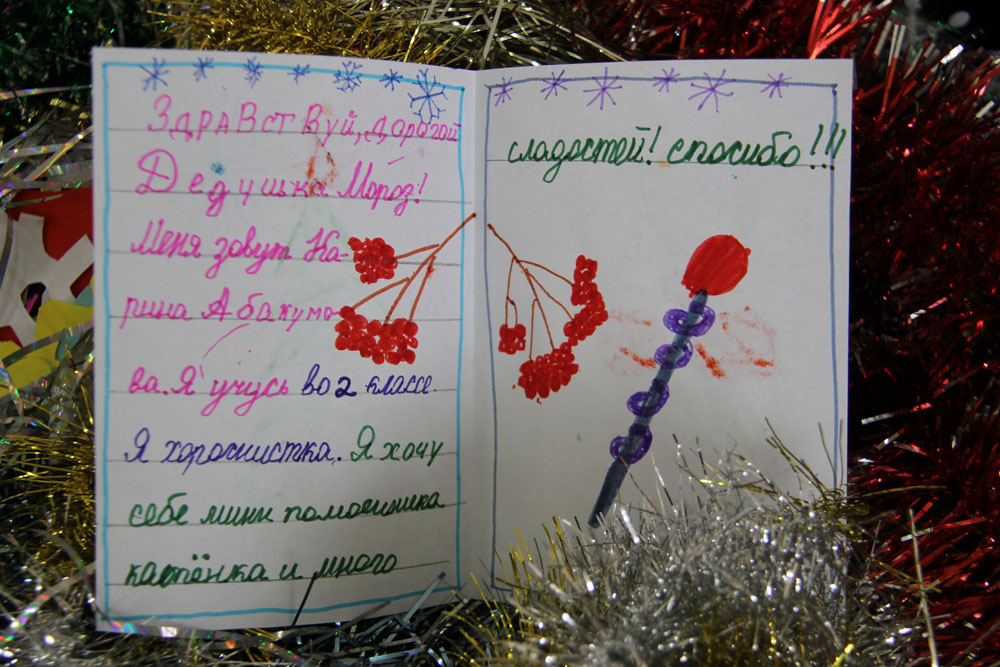 Здравствуй, дорогой
Дедушка Мороз!
Меня зовут Ка-
рина Абакумо-
ва. Я учусь во 2 классе.
Я хорошистка. Я хочу
себе мини помощника
котёнка и много
сладостей! спасибо!!!